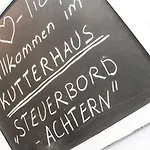 llkommen im
KUTTERHAUS
"STEUERBORD
-ACHTERN"